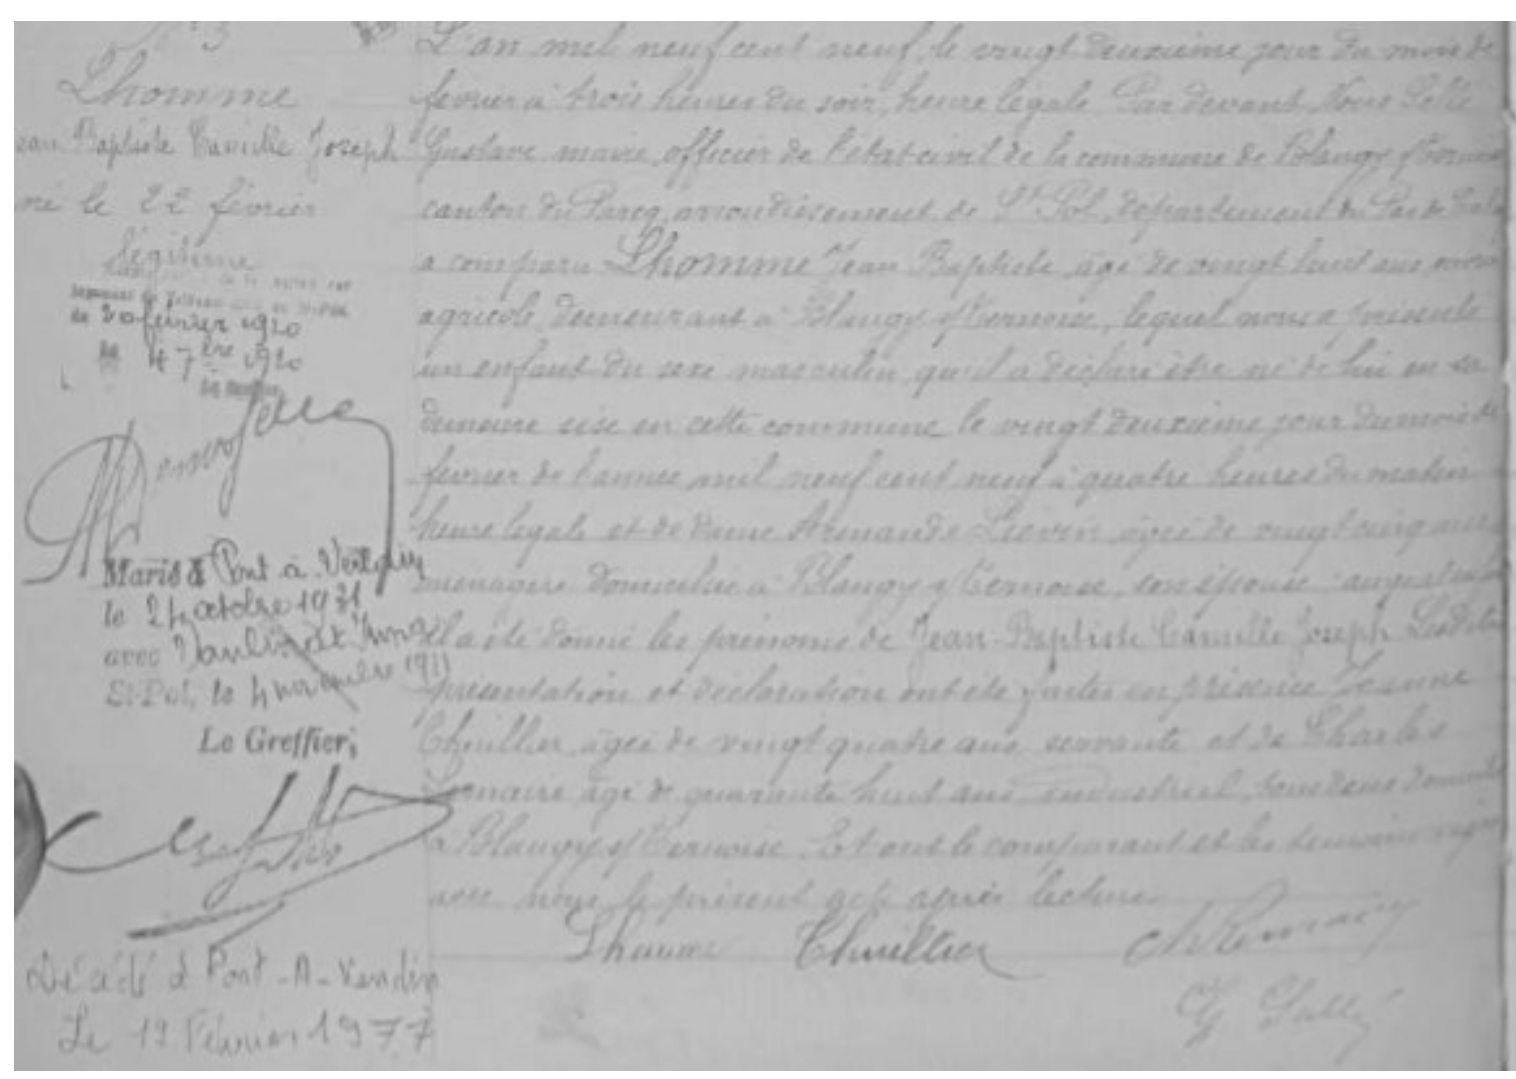 N° 3
Lhomme
Jean Baptiste Camille Joseph
né le 22 février
légitime
de 20 février 1920
le 4 7bre 1920
Marié à Pont à Vendin
le 24 octobre 1931
avec
St-Pol, le 4 novembre 1931
Le Greffier,
Décédé à Pont-A-Vendin
Le 12 Février 1977
L'an mil neuf cent neuf, le vingt deuxième jour du mois de
février à trois heures du soir, heure légale Par devant Nous Sallé
Gustave maire, officier de l'état civil de la commune de Blangy s/Ternoise
canton du Parcq, arrondissement de St Pol, département du Pas de Cala
a comparu Lhomme Jean Baptiste âgé de vingt huit ans,
agricole, demeurant à Blangy s/Ternoise, lequel nous a présenté
un enfant du sexe masculin qu'il a déclaré être né de lui en sa
demeure sise en cette commune le vingt deuxième jour du mois de
février de l'année mil neuf cent neuf à quatre heures du matin
heure légale et de dame Armande Liévin âgée de vingt cinq ans
ménagère domiciliée à Blangy s/Ternoise, son épouse auquel
il a été donné les prénoms de Jean-Baptiste Camille Joseph Lesdites
présentation et déclaration ont été faites en présence Jeanne
Thuillier âgée de vingt quatre ans servante et de Charles
Lemaire âgé de quarante huit ans industriel, tous deux
à Blangy s/Ternoise. Et ont le comparant et les témoins signé
avec nous le présent acte après lecture.
Lhomme Thuillier Ch Lemaire
G Sallé